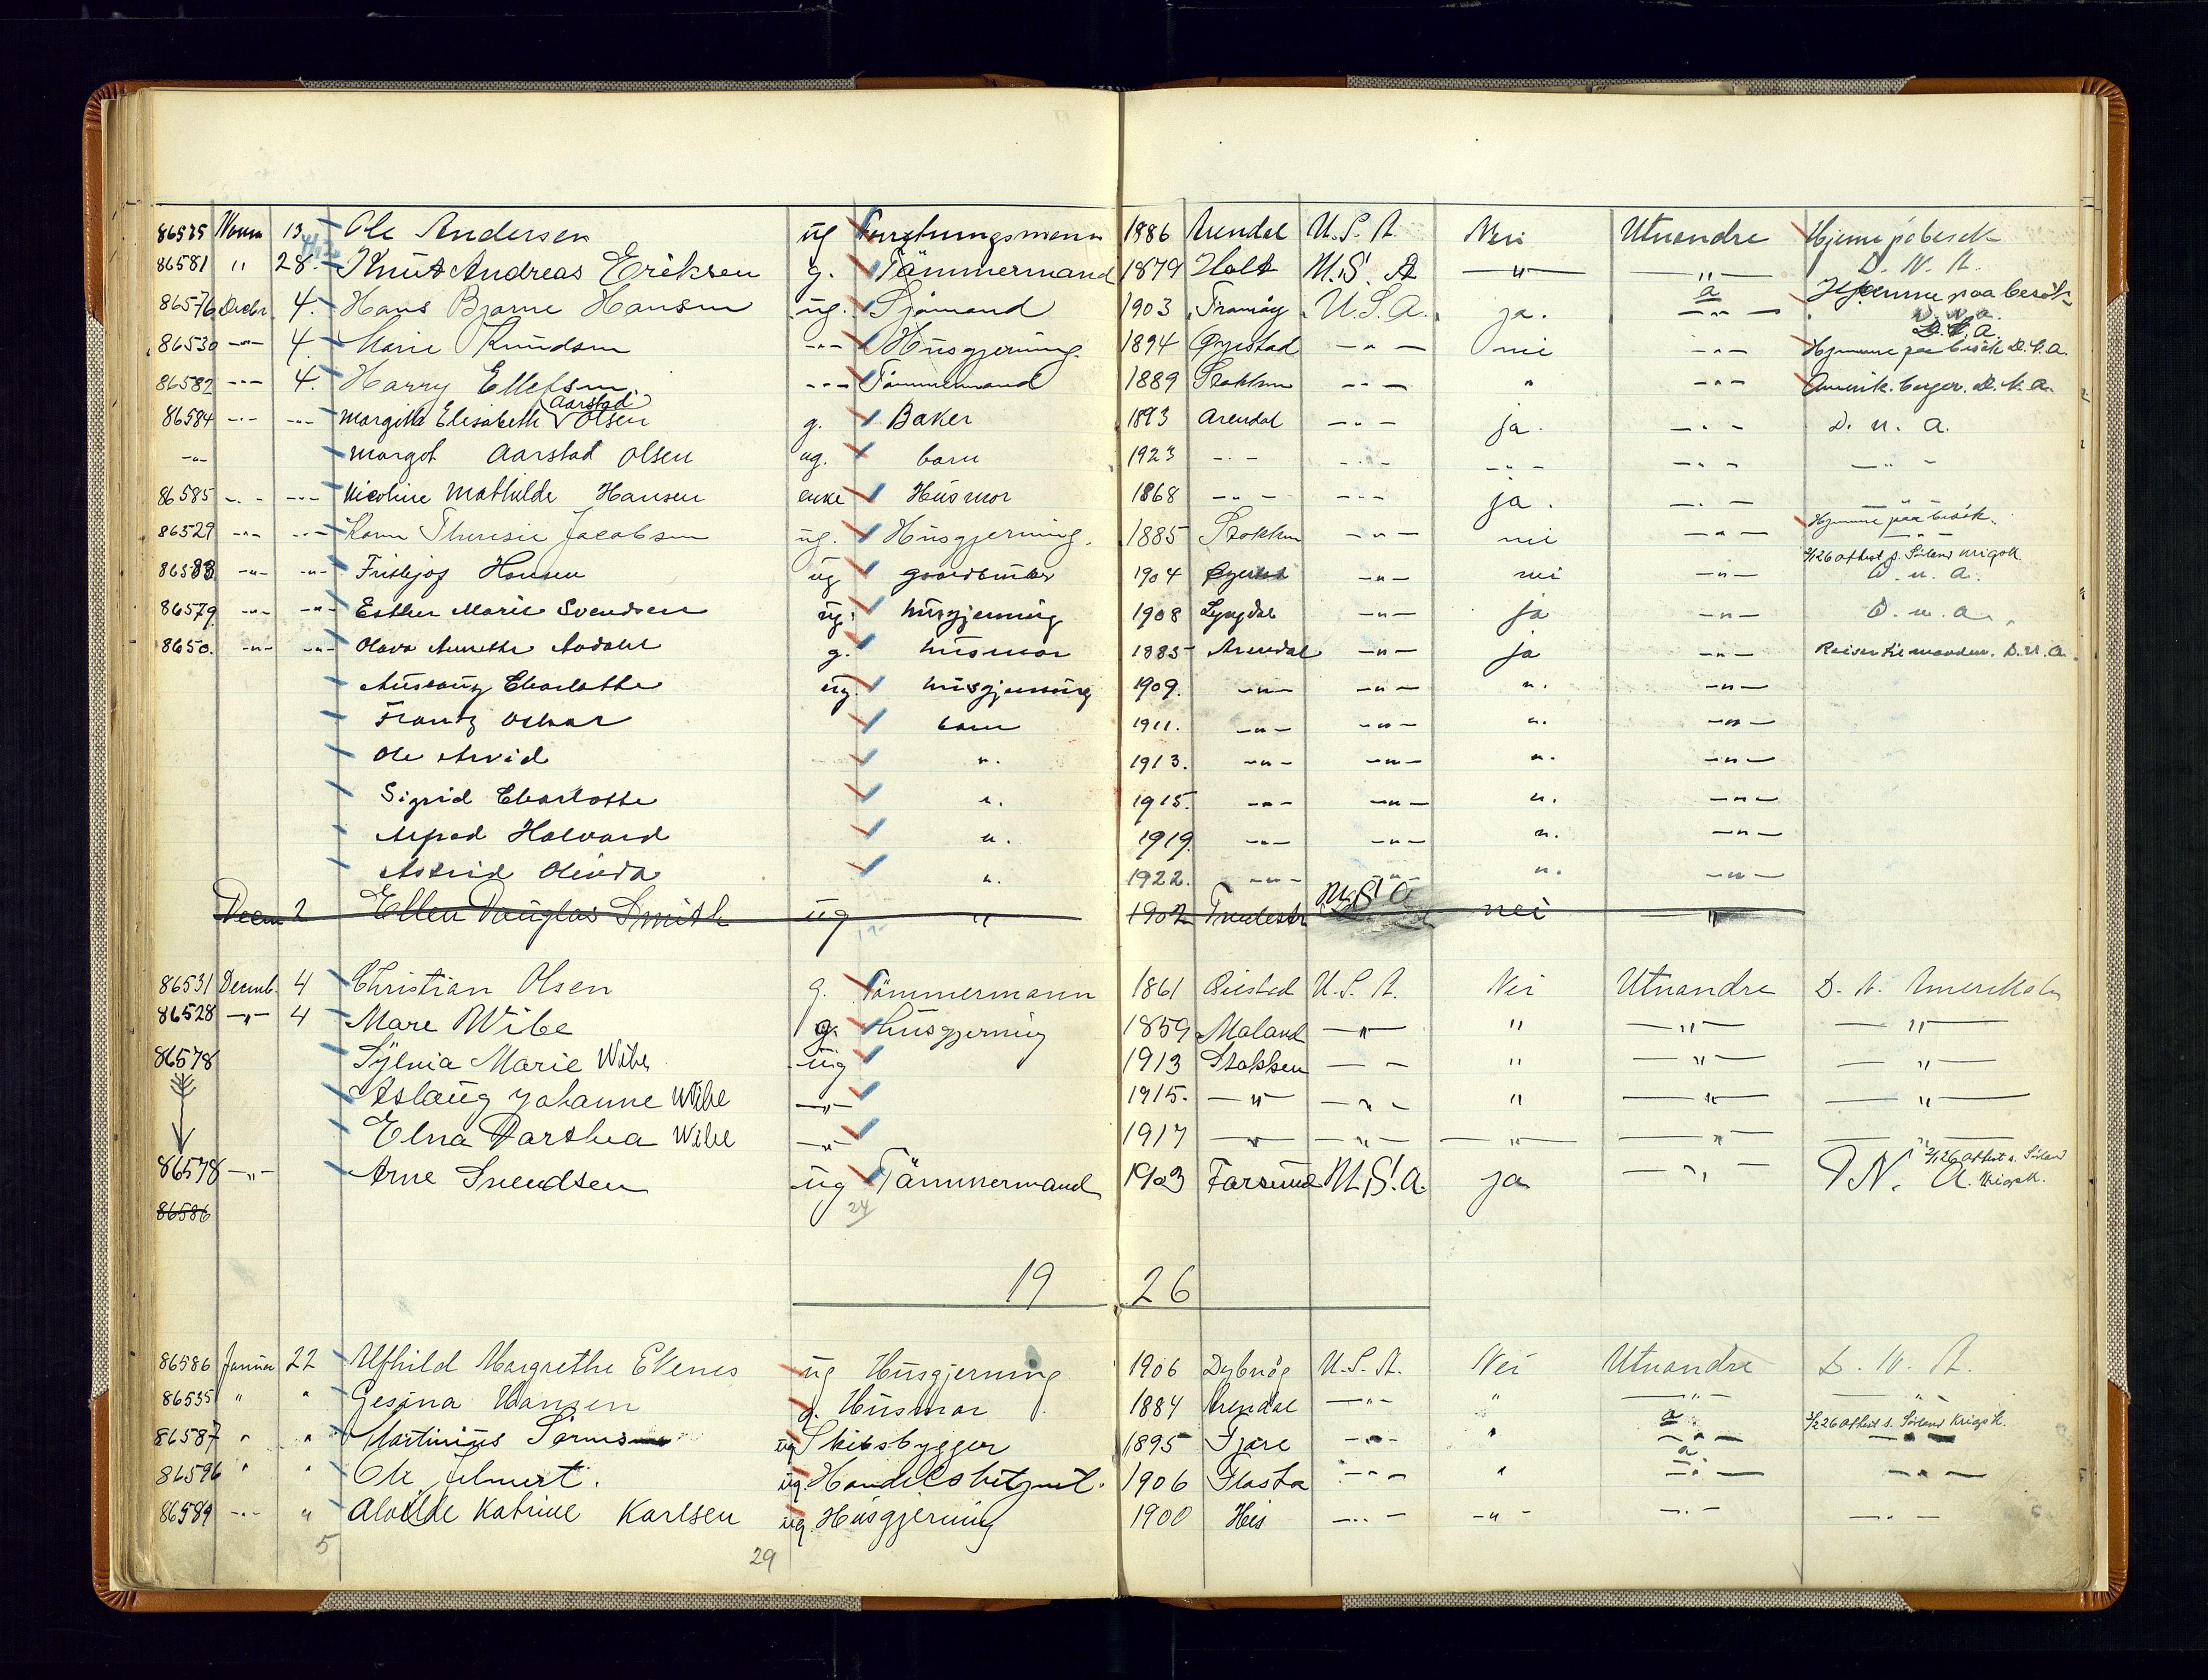 86575 Novem 13 Ole Andersen ug Forretningsmann 1886 Arendal U.S.A. Nei Utvandre Hjeme på besøk
D. N. A.
86581 " 28. Knut Andreas Eriksen g. Tømmermand 1879 Holt U.S.A — " — — " —
86576 Decbr. 4. Hans Bjarne Hansen ug. Sjømand 1903 Tromøy U.S.A. ja. — " — Hjemme paa besøk
D. N. A.
86530 — " — 4. Marie Knudsen — " — Husgjerning. 1894 Øyestad — " — nei — " — Hjemme paa besøk D. N. A.
86582 — " — 4. Harry Ellefsen. — " — Tømmermand 1889 Stokken — " — " — " — Amerik. borger. D. N. A.
86584 — " — — " — Margitta Elisabeth Aarstad Olsen g. Baker 1893 Arendal — " — ja. — " — D. N. A.
— " — Margot Aarstad Olsen ug. barn 1923 — " — — " — — " — — " — — " —
86585 — " — — " — Nicoline Mathilde Hansen enke Husmor 1868 — " — — " — ja. — " — — " —
86529 — " — — " — Karen Theresie Jacobsen ug. Husgjerning. 1885 Stokken — " — nei — " — Hjemme paa besøk.
86583 — " — — " — Frithjof Hansen ug 1904 — " — nei — " — D. N. A.
86579 — " — — " — Esther Marie Svendsen ug. husgjerning 1908 Lyngdal — " — ja — " — D. N. A.
8650. — " — — " — Olava Annette Aadahl g. husmor 1885 Arendal — " — ja — " — Reiser til manden. D. N. A.
Charlotte ug. husgjerning 1909. — " — — " — ". — " —
Frantz Oskar barn 1911. — " — — " — ". — " —
Ole Arvid ". 1913. — " — — " — ". — " —
Sigrid Charlotte ". 1915. — " — — " — ". — " —
Halvard ". 1919. — " — — " — ". — " —
Astrid ". 1922. — " — — " — ". — " —
Decem 2 Ellen Douglas Smith ug " 1902 U.S.A nei "
86531 Decemb. 4 Christian Olsen g. Tømmermann 1861 Øiestad U.S.A. Nei Utvandre D. N. Amerikal
86528 — " — 4 Mare Wibe g. husgjerning 1859 Moland — " — " — " — — " —
86578 Sylvia Marie Wibe ug 1913 Stokken — — " — " — — " —
Aslaug Johanne Wibe — " — 1915. — " — — " — " — " — — " —
Elna Dorthea Wibe — " — 1917 — " — — " — — " — — " — — " —
86578 — " — Arne Svendsen ug Tømmermand 1903 Farsund U.S.A. ja — " — D. N. A.
24
86586
19 26
86586 Januar 22 Alfhild Margrethe Ekenes ug Husgjerning 1906 Dybvåg U.S.A. Nei Utvandre D. N. A.
86535 " " Gesina Hansen g. Husmor 1884 Arendal — " — " — " — — " —
86587 " " Martinius ug Skibsbygger 1895 Fjære — " — " — " — — " —
86596 " " Ole ug. Handelsbetjent. 1906 Flosta — " — " — " — — " —
86589 — " — " Alvilde Katrine Karlsen ug. Husgjerning 1900 His — " — — " — — " — — " —
5 29